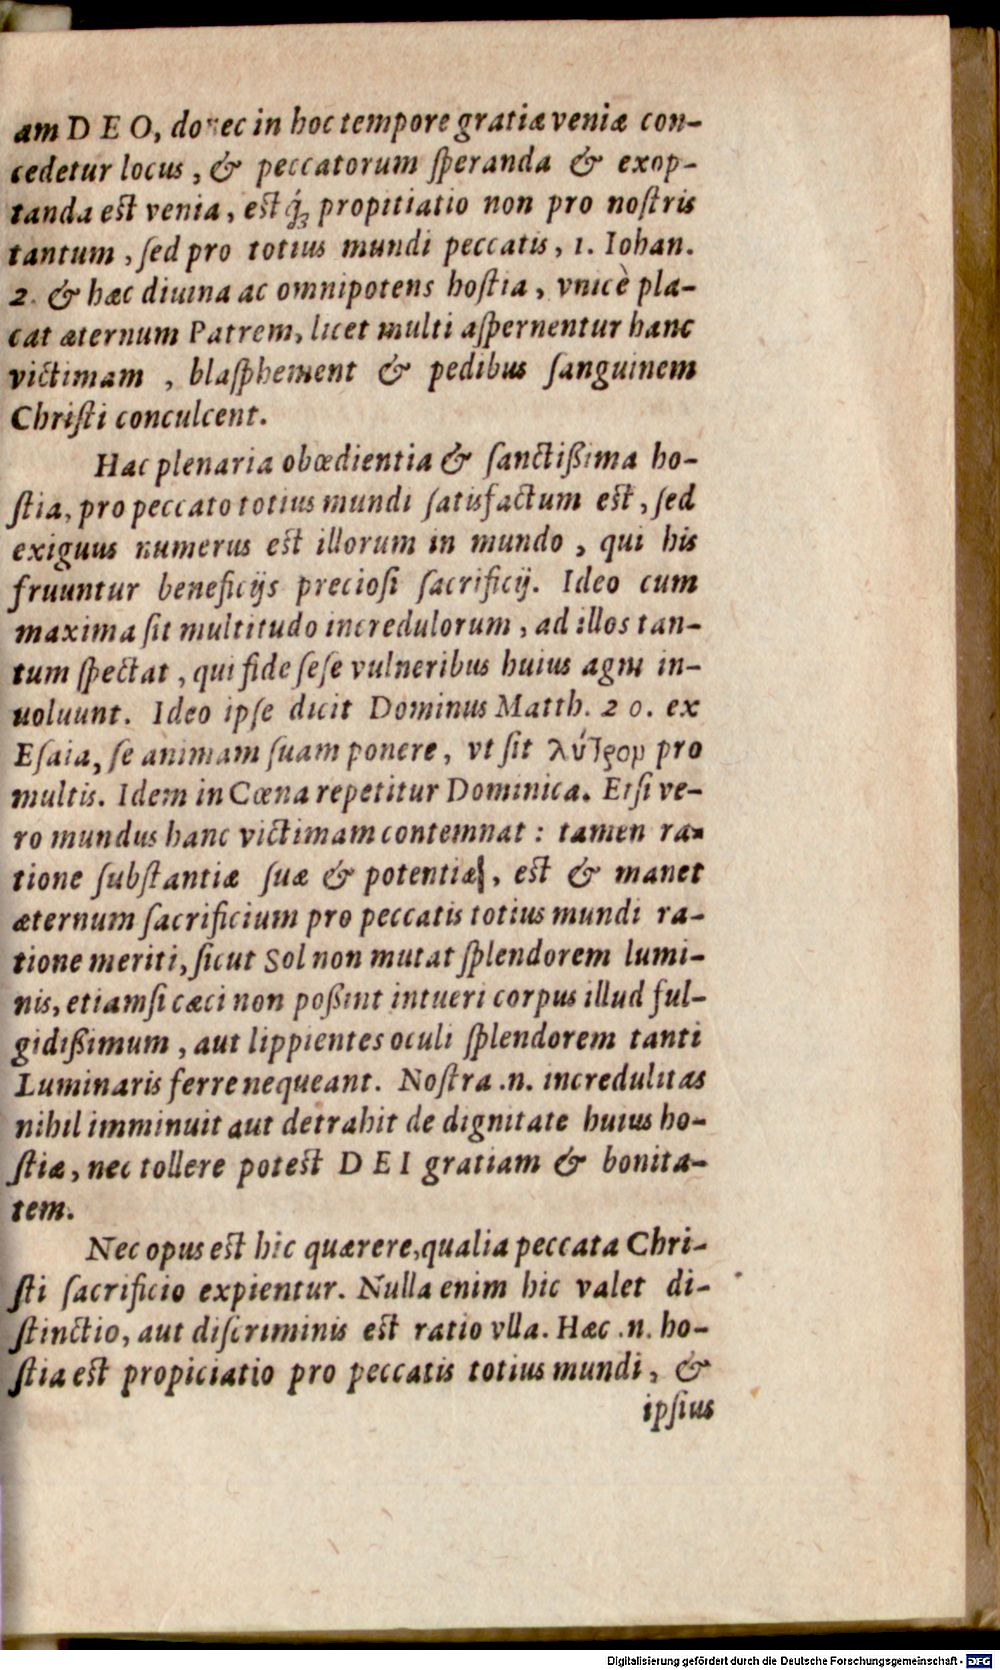 am D E O, donec in hoc tempore gratiæ veniæ con-
cedetur locus, & peccatorum ſperanda & exop-
tanda est venia, est q́ꝫ propitiatio non pro noſtris
tantum, ſed pro totius mundi peccatis, 1. Iohan.
2. & hæc diuina ac omnipotens hoſtia, vnicè pla-
cat æternum Patrem, licet multi aſpernentur hanc
victimam, blaſphement & pedibus ſanguinem
Chriſti conculcent.
Hac plenaria obœdientia & ſanctißima ho-
ſtia, pro peccato totius mundi ſatisfactum est, ſed
exiguus numerus est illorum in mundo, qui his
fruuntur beneficijs precioſi ſacrificij. Ideo cum
maxima ſit multitudo incredulorum, ad illos tan-
tum ſpectat, qui fide ſeſe vulneribus huius agni in-
uoluunt. Ideo ipſe dicit Dominus Matth. 20. ex
Eſaia, ſe animam ſuam ponere, vt ſit λύτρον pro
multis. Idem in Cœna repetitur Dominica. Etſi ve-
ro mundus hanc victimam contemnat: tamen ra-
tione ſubſtantiæ ſuæ & potentiæ, est & manet
æternum ſacrificium pro peccatis totius mundi ra-
tione meriti, ſicut Sol non mutat ſplendorem lumi-
nis, etiamſi cæci non poßint intueri corpus illud ful-
gidißimum, aut lippientes oculi ſplendorem tanti
Luminaris ferre nequeant. Noſtra .n. incredulitas
nihil imminuit aut detrahit de dignitate huius ho-
ſtiæ, nec tollere potest D E I gratiam & bonita-
tem.
Nec opus est hic quærere, qualia peccata Chri-
ſti ſacrificio expientur. Nulla enim hic valet di-
ſtinctio, aut diſcriminis est ratio vlla. Hæc .n. ho-
ſtia est propiciatio pro peccatis totius mundi, &
ipſius
Digitalisierung gefördert durch die Deutsche Forschungsgemeinschaft - DFG